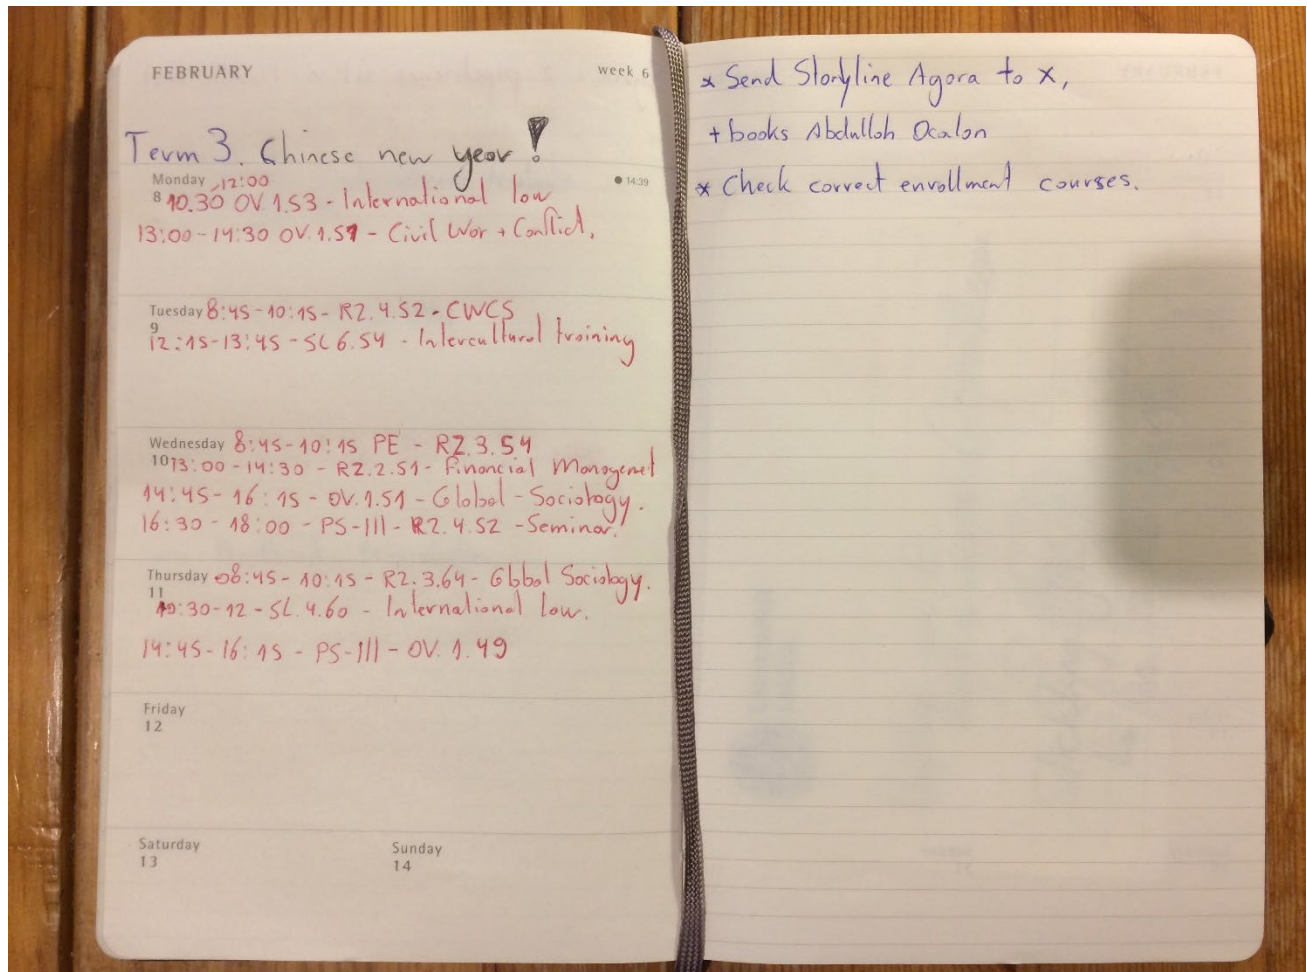 FEBRUARY
week 6
Term 3. Chinese new year!
Monday ,12:00
● 14:39
8 10.30 OV 1.53 - International law
13:00 - 14:30 OV. 1.51 - Civil War + Conflict,
Tuesday 8:45 - 10:15 - RZ. 4.52 - CWCS
9
12:15-13:45 - SL 6.54 - Intercultural training
Wednesday 8:45-10:15 PE - RZ.3.54
10 13:00 - 14:30 - RZ.2.51 - Financial Managemet
14:45 - 16:15 - OV.1.51 - Global - Sociology.
16:30 - 18:00 - PS-III - RZ.4.52 - Seminar.
Thursday 08:45 - 10:15 - RZ.3.64 - Global Sociology.
11
10:30-12 - SL.4.60 - International law.
14:45-16:15 - PS-III - OV. 1.49
Friday
12
Saturday
13
Sunday
14
* Send Storyline Agora to X,
+ books Abdullah Ocalan
* Check correct enrollment courses.